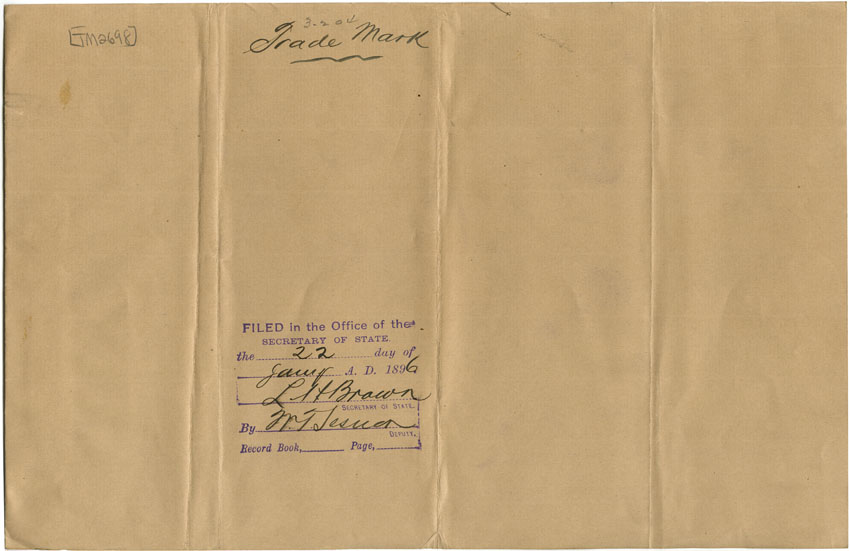 [TM2698]
3-204
Trade Mark
FILED in the Office of the
SECRETARY OF STATE.
the 22 day of
Jany A. D. 1896
L H Brown
SECRETARY OF STATE.
By W. T.
DEPUTY.
Record Book, Page,